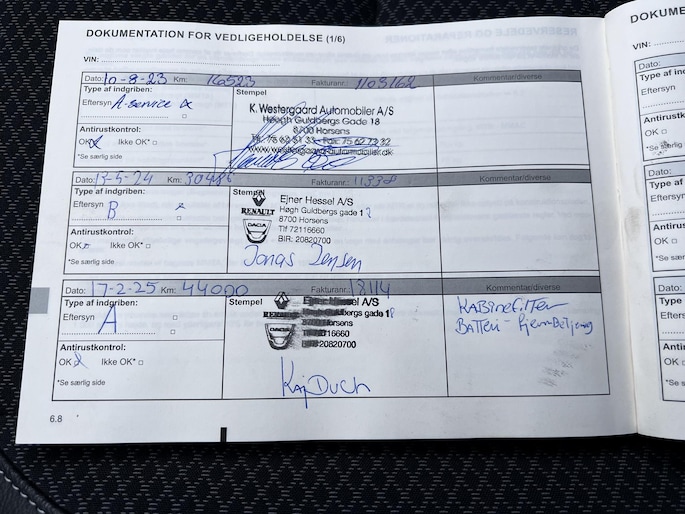 DOKUMENTATION FOR VEDLIGEHOLDELSE (1/6)
VIN:
Dato: 10-8-23 Km: 16523 Fakturanr.: 1103162 Kommentar/diverse
Type af indgriben:
Eftersyn A-service
Stempel
K. Westergaard Automobiler A/S
Høegh Guldbergs Gade 18
8700 Horsens
Tlf. 75 62 51 33 - Fax: 75 62 72 32
www.westergaard-automobiler.dk
Antirustkontrol:
OK Ikke OK*
*Se særlig side
Dato: -5-24 Km: Fakturanr.: Kommentar/diverse
Type af indgriben:
Eftersyn B
Stempel
RENAULT
DACIA
Ejner Hessel A/S
Høgh Guldbergs gade 12
8700 Horsens
Tlf 72116660
BIR: 20820700
Jonas Jensen
Antirustkontrol:
OK Ikke OK*
*Se særlig side
Dato: 17-2-25 Km: 44000 Fakturanr.: 18114 Kommentar/diverse
Type af indgriben:
Eftersyn A
Stempel
RENAULT
DACIA
Ejner Hessel A/S
Guldbergs gade
Horsens
72116660
20820700
Kaj Duch
KABinefilter
BATTeri - fjernBetjening
Antirustkontrol:
OK Ikke OK*
*Se særlig side
6.8
RESERVEDELE OG REPARATIONER
DOKUME
VIN:
Dato:
Type a
Eftersyn
Antirus
OK
*Se sær
Dato:
Type
Eftersy
Antir
OK
*Se s
Dato
Type
Efter
Anti
OK
*Se